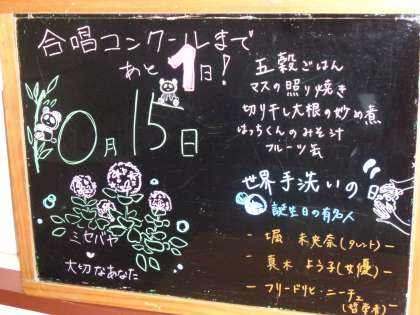 合唱コンクールまで
あと1日!
10月15日
五穀ごはん
マスの照り焼き
切り干し大根の炒め煮
はっちくんのみそ汁
フルーツ缶
世界手洗いの日
誕生日の有名人
- 堀 未央奈(タレント) -
- 真木 よう子(女優) -
- フリードリヒ・ニーチェ
(哲学者) -
ミセバヤ
♥
大切なあなた